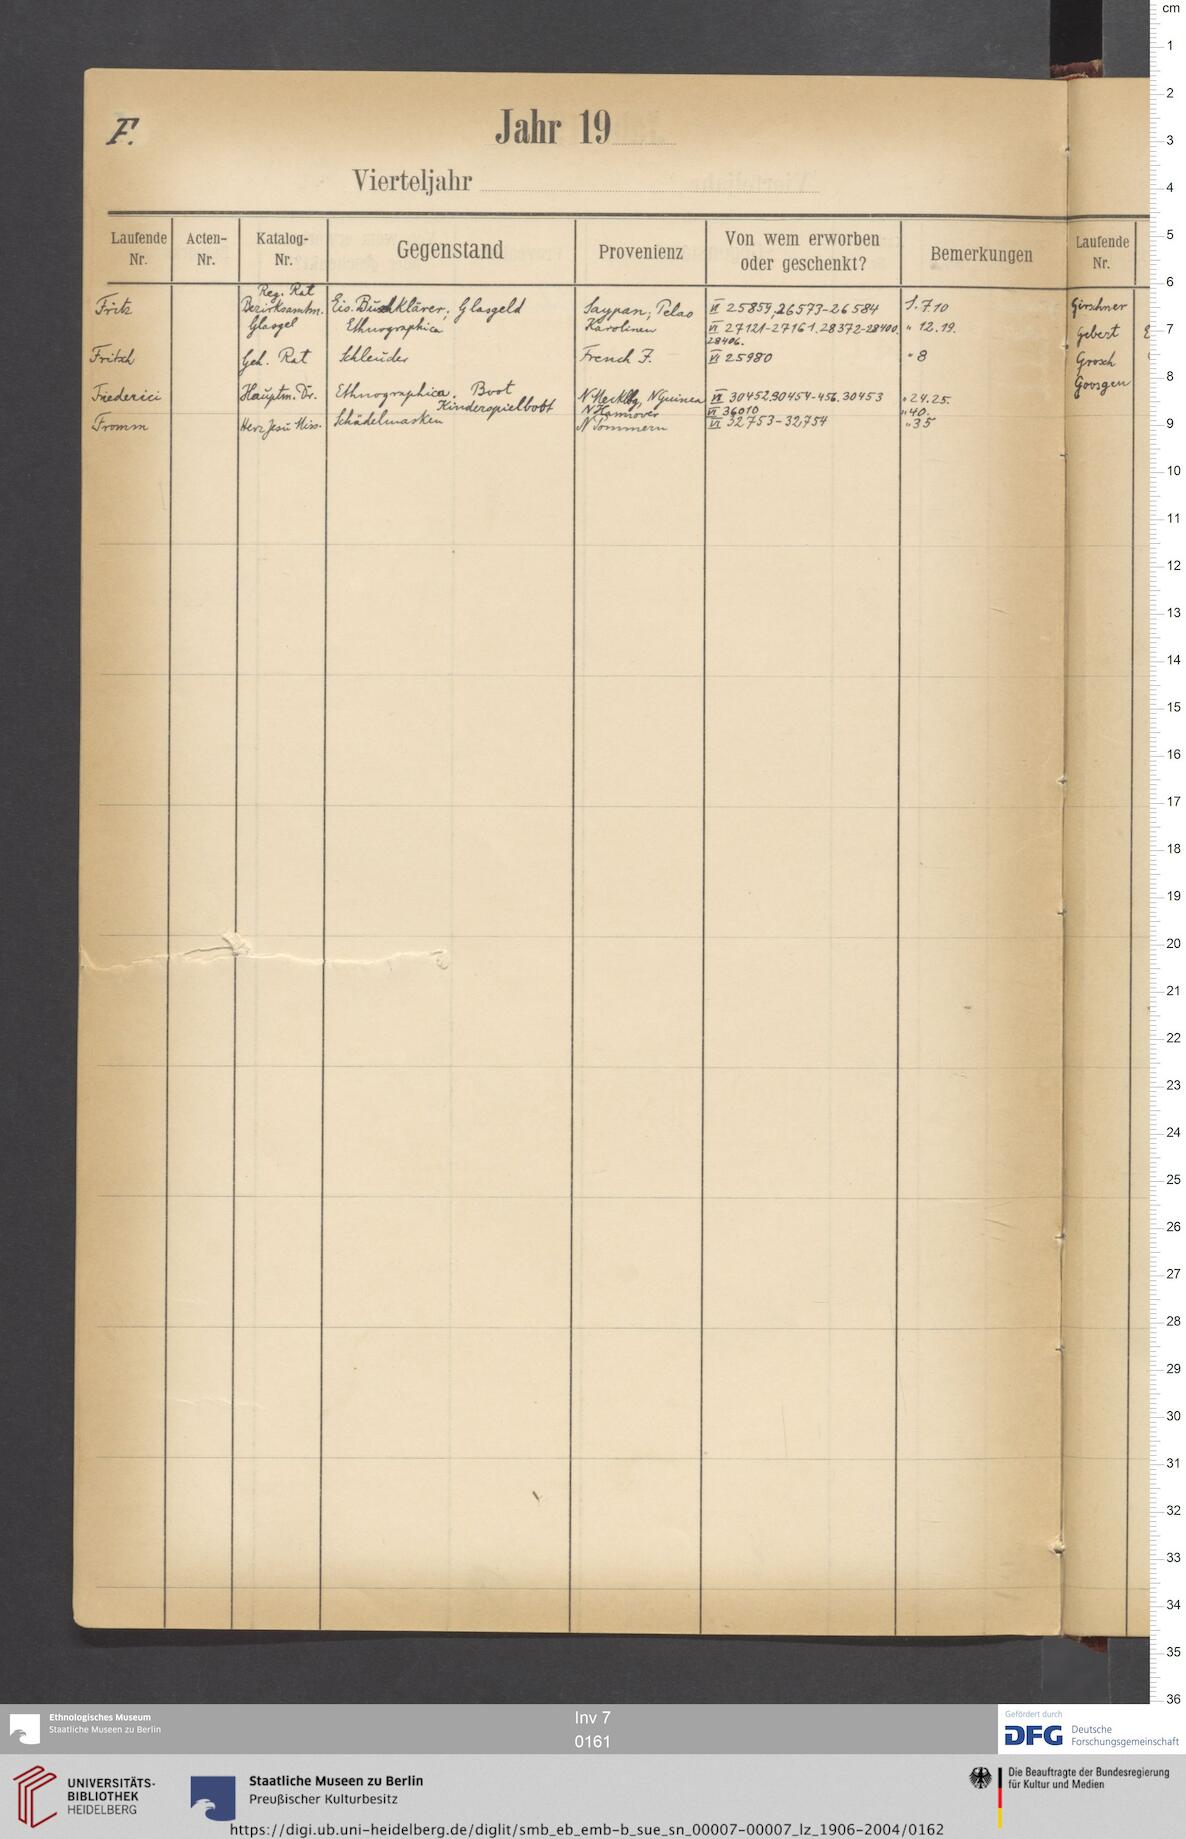 F.
Jahr 19
Vierteljahr
Laufende Nr.
Acten-Nr.
Katalog-Nr.
Gegenstand
Provenienz
Von wem erworben oder geschenkt?
Bemerkungen
Laufende Nr.
Reg. Rat
Fritz Bezirksamtm. Eis. Glasgeld Saypan, Pelao VI 25859, 26573-26584 S. 7. 10
Ethnographica Karolinen VI 27121-27161. 28372-28400, " 12. 19.
28406.
Fritsch Geh. Rat Schleuder French F. VI 25980 " 8
Friederici Hauptm. Dr. Ethnographica, Boot N Mecklbg, N Guinea VI 30452, 30454-456. 30453 " 24. 25.
Kinderspielboot N Hannover VI 36010 " 40.
Fromm Herz Jesu Miss. Schädelmasken N Pommern VI 32753-32754 " 35
Girschner
Gebert
Grosch
cm
1
2
3
4
5
6
7
8
9
10
11
12
13
14
15
16
17
18
19
20
21
22
23
24
25
26
27
28
29
30
31
32
33
34
35
36
Ethnologisches Museum
Staatliche Museen zu Berlin
Inv 7
0161
Gefördert durch
DFG Deutsche
Forschungsgemeinschaft
UNIVERSITÄTS-
BIBLIOTHEK
HEIDELBERG
Staatliche Museen zu Berlin
Preußischer Kulturbesitz
Die Beauftragte der Bundesregierung
für Kultur und Medien
https://digi.ub.uni-heidelberg.de/diglit/smb_eb_emb-b_sue_sn_00007-00007_lz_1906-2004/0162